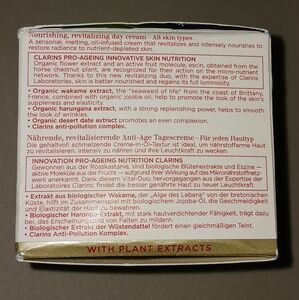 Nourishing, revitalizing day cream - All skin types
A sensorial, melting, oil-infused cream that revitalizes and intensely nourishes to
restore radiance to nutrient-depleted skin.
CLARINS PRO-AGEING INNOVATIVE SKIN NUTRITION
Organic flower extract and an active fruit molecule, escin, obtained from the
horse chestnut plant, are recognized for their action on the micro-nutrient
network. Thanks to this new revitalizing duo, with the expertise of Clarins
Laboratories, skin is better nourished and regains its full luminosity.
• Organic wakame extract, the "seaweed of life" from the coast of Brittany,
France, combined with organic jojoba oil, helps to promote the look of skin's
suppleness and elasticity.
• Organic harungana extract, with a strong replenishing power, helps to smooth
the look of wrinkles.
• Organic desert date extract promotes an even complexion.
• Clarins anti-pollution complex.
Nährende, revitalisierende Anti-Age Tagescreme - Für jeden Hauttyp
Die gehaltvoll schmelzende Creme-in-Öl-Textur ist ideal, um nährstoffarme Haut
zu revitalisieren, intensiv zu nähren und ihr Leuchtkraft zu verleihen.
INNOVATION PRO-AGEING NUTRITION CLARINS
Gewonnen aus der Rosskastanie, sind biologische Blütenextrakte und Eszine –
aktive Moleküle aus der Frucht – aufgrund ihrer Wirkung auf das Mikronährstoffnetz-
werk anerkannt. Dank diesem Vital-Duo, hervorgegangen aus der Expertise der
Laboratoires Clarins, findet die besser genährte Haut zu neuer Leuchtkraft.
• Extrakt aus biologischer Wakame, der „Alge des Lebens" von der bretonischen
Küste, hilft im Zusammenspiel mit biologischem Jojoba-Öl, die Geschmeidigkeit
und Elastizität der Haut zu bewahren.
• Biologischer Haronga-Extrakt, mit stark hautverdichtender Fähigkeit, trägt dazu
bei, das Erscheinungsbild von Falten zu mildern.
• Biologischer Extrakt der Wüstendattel fördert einen gleichmäßigen Teint.
• Clarins Anti-Pollution Komplex.
WITH PLANT EXTRACTS